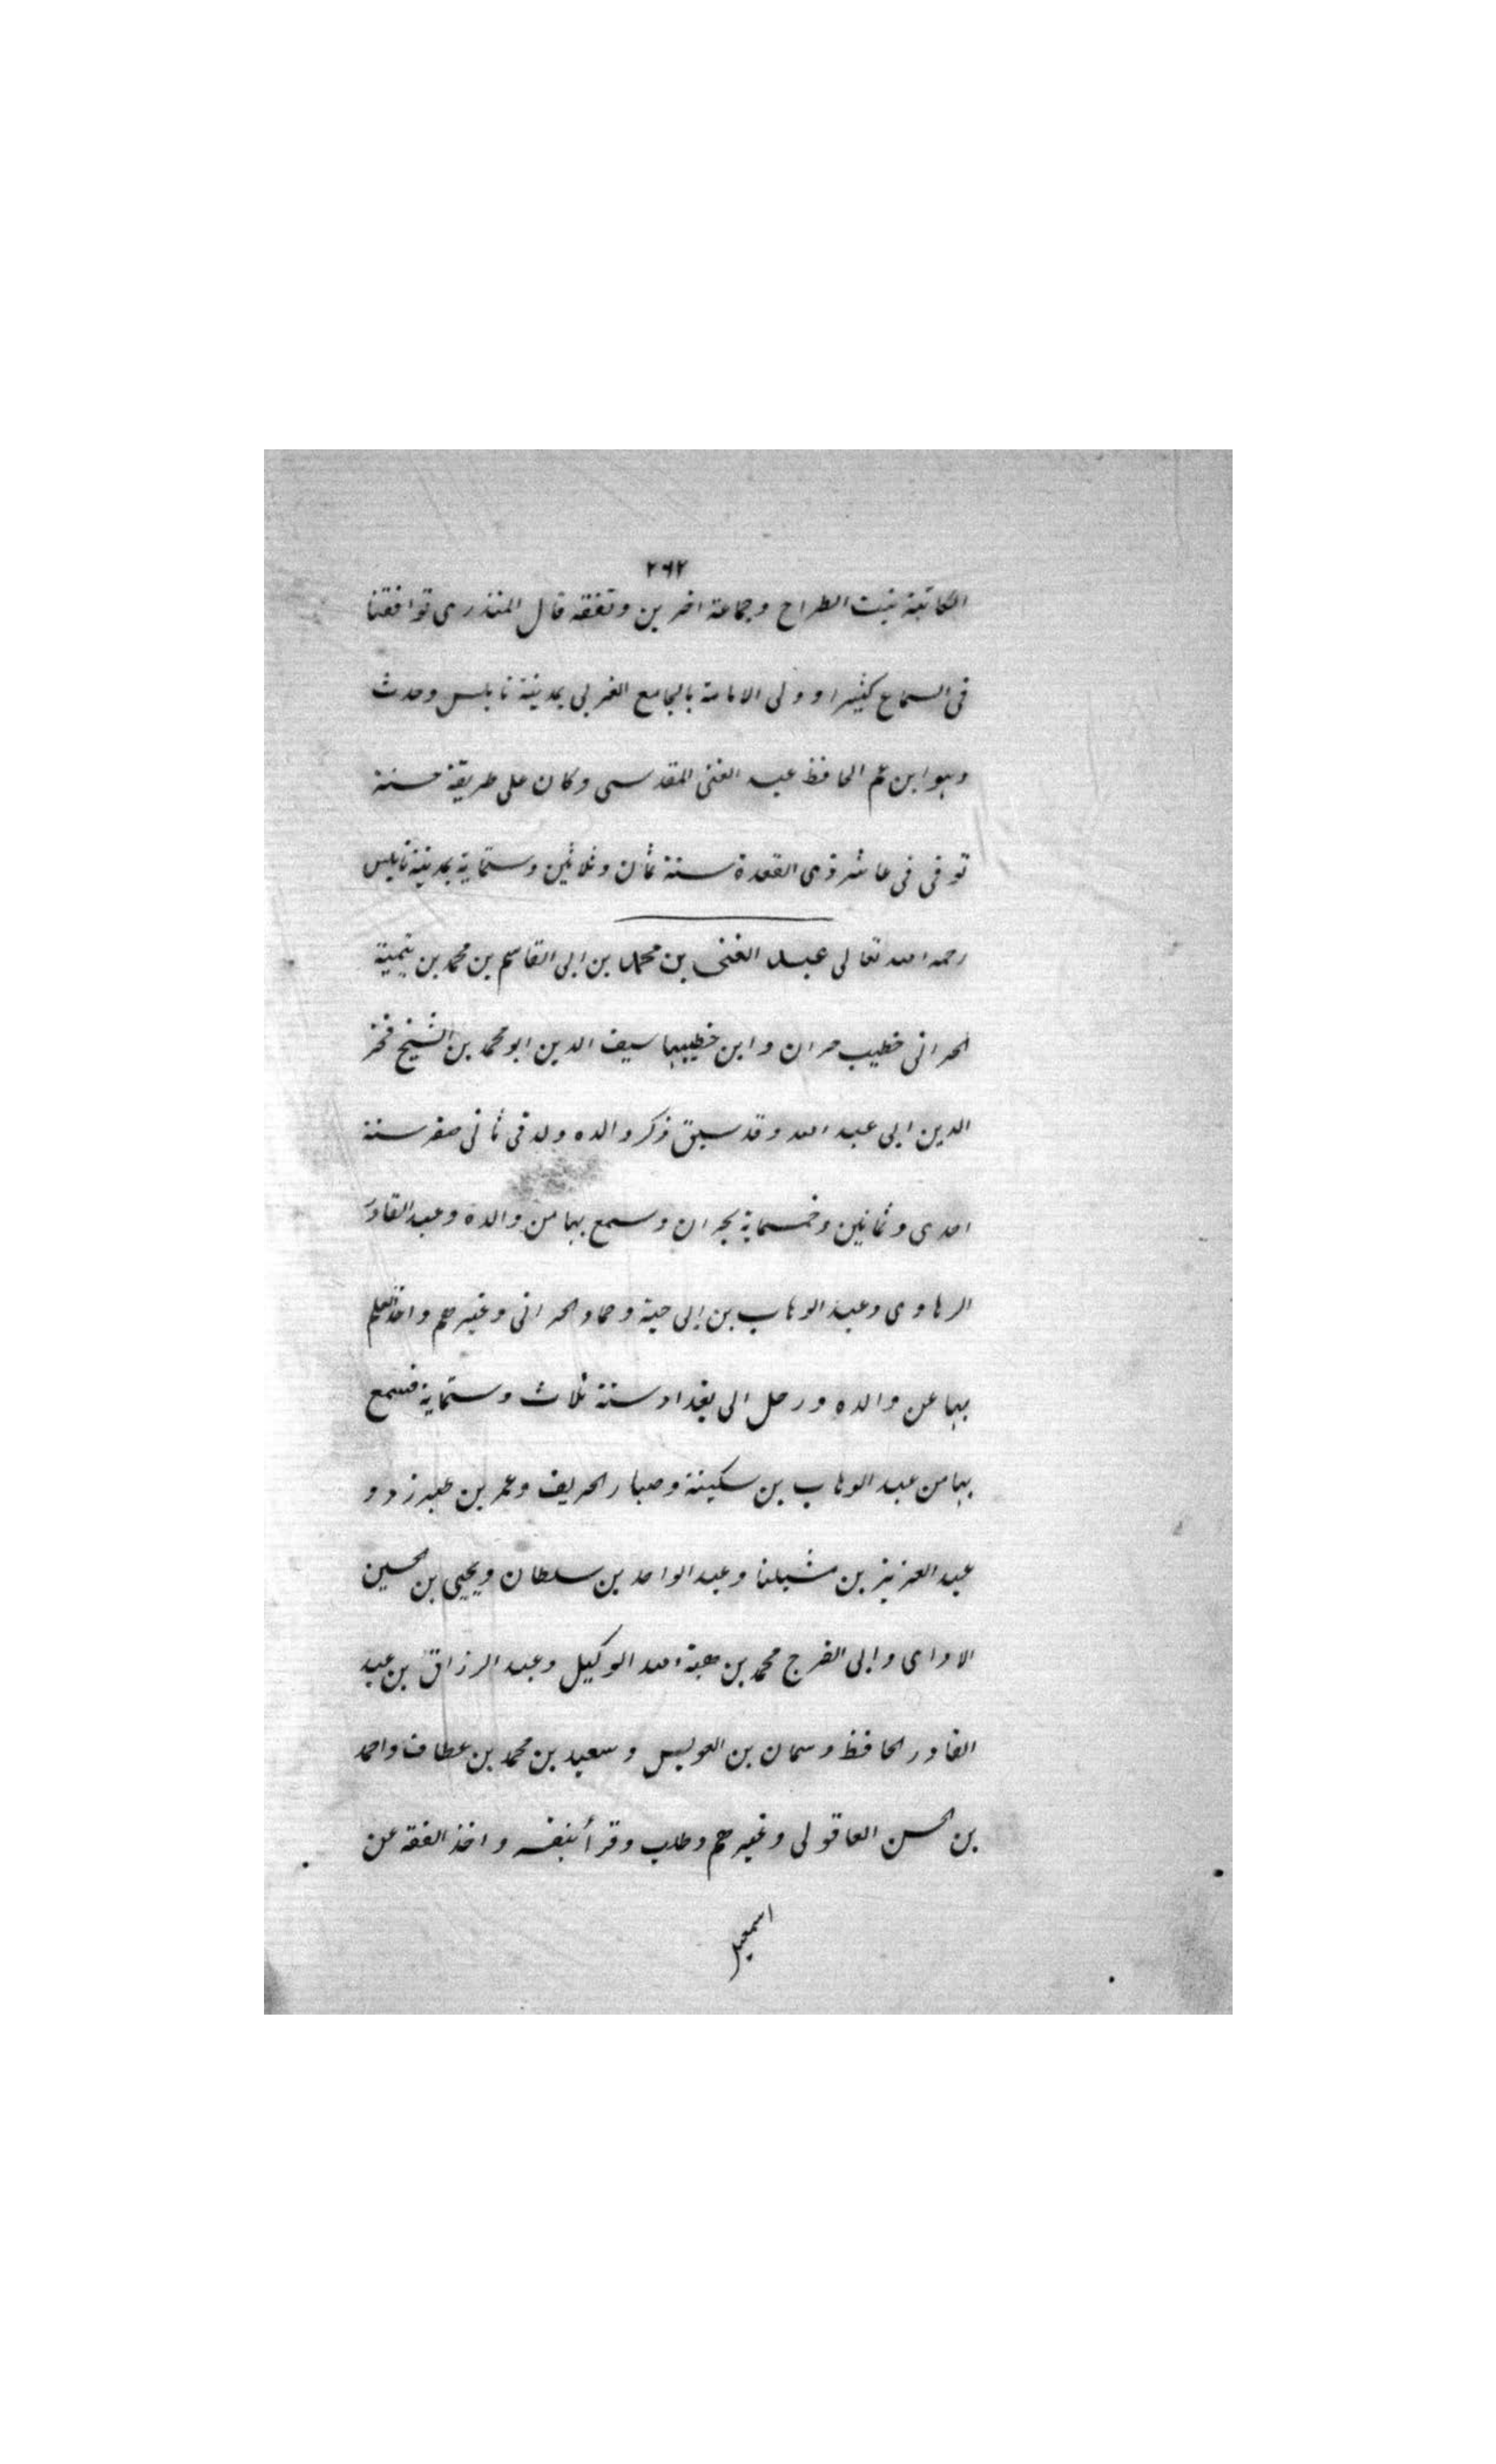 ٢٦٢
الكاتبة بنت الطراح وجماعة اخرين وتفقه قال المنذرى توافقنا
فى السماع كثيرا وولى الامامة بالجامع الغربى بمدينة نابلس وحدث
وهو ابن عم الحافظ عبد الغنى المقدسى وكان على طريقة حسنة
توفى فى عاشر ذى القعدة سنة ثمان وثلاثين وستماية بمدينة نابلس
رحمه الله تعالى عبد الغنى بن محمد بن ابى القاسم بن محمد بن تيمية
الحرانى خطيب حران وابن خطيبها سيف الدين ابو محمد بن الشيخ فخر
الدين ابى عبد الله وقد سبق ذكر والده ولد فى ثانى صفر سنة
احدى وثمانين وخمسماية بحران وسمع بها من والده وعبد القادر
الرهاوى وعبد الوهاب بن ابى حبة وحماد الحرانى وغيرهم واخذ العلم
بها عن والده ورحل الى بغداد سنة ثلاث وستماية فسمع
بها من عبد الوهاب بن سكينة وضيا الخريف وعمر بن طبرزد و
عبد العزيز بن منينا وعبد الواحد بن سلطان ويحيى بن الحسين
الاوانى وابى الفرج محمد بن هبة الله الوكيل وعبد الرزاق بن عبد
القادر الحافظ وسمان بن العويس وسعيد بن محمد بن عطاف واحمد
بن الحسن العاقولى وغيرهم وطلب وقرأ بنفسه واخذ الفقه عن
اسمعيل